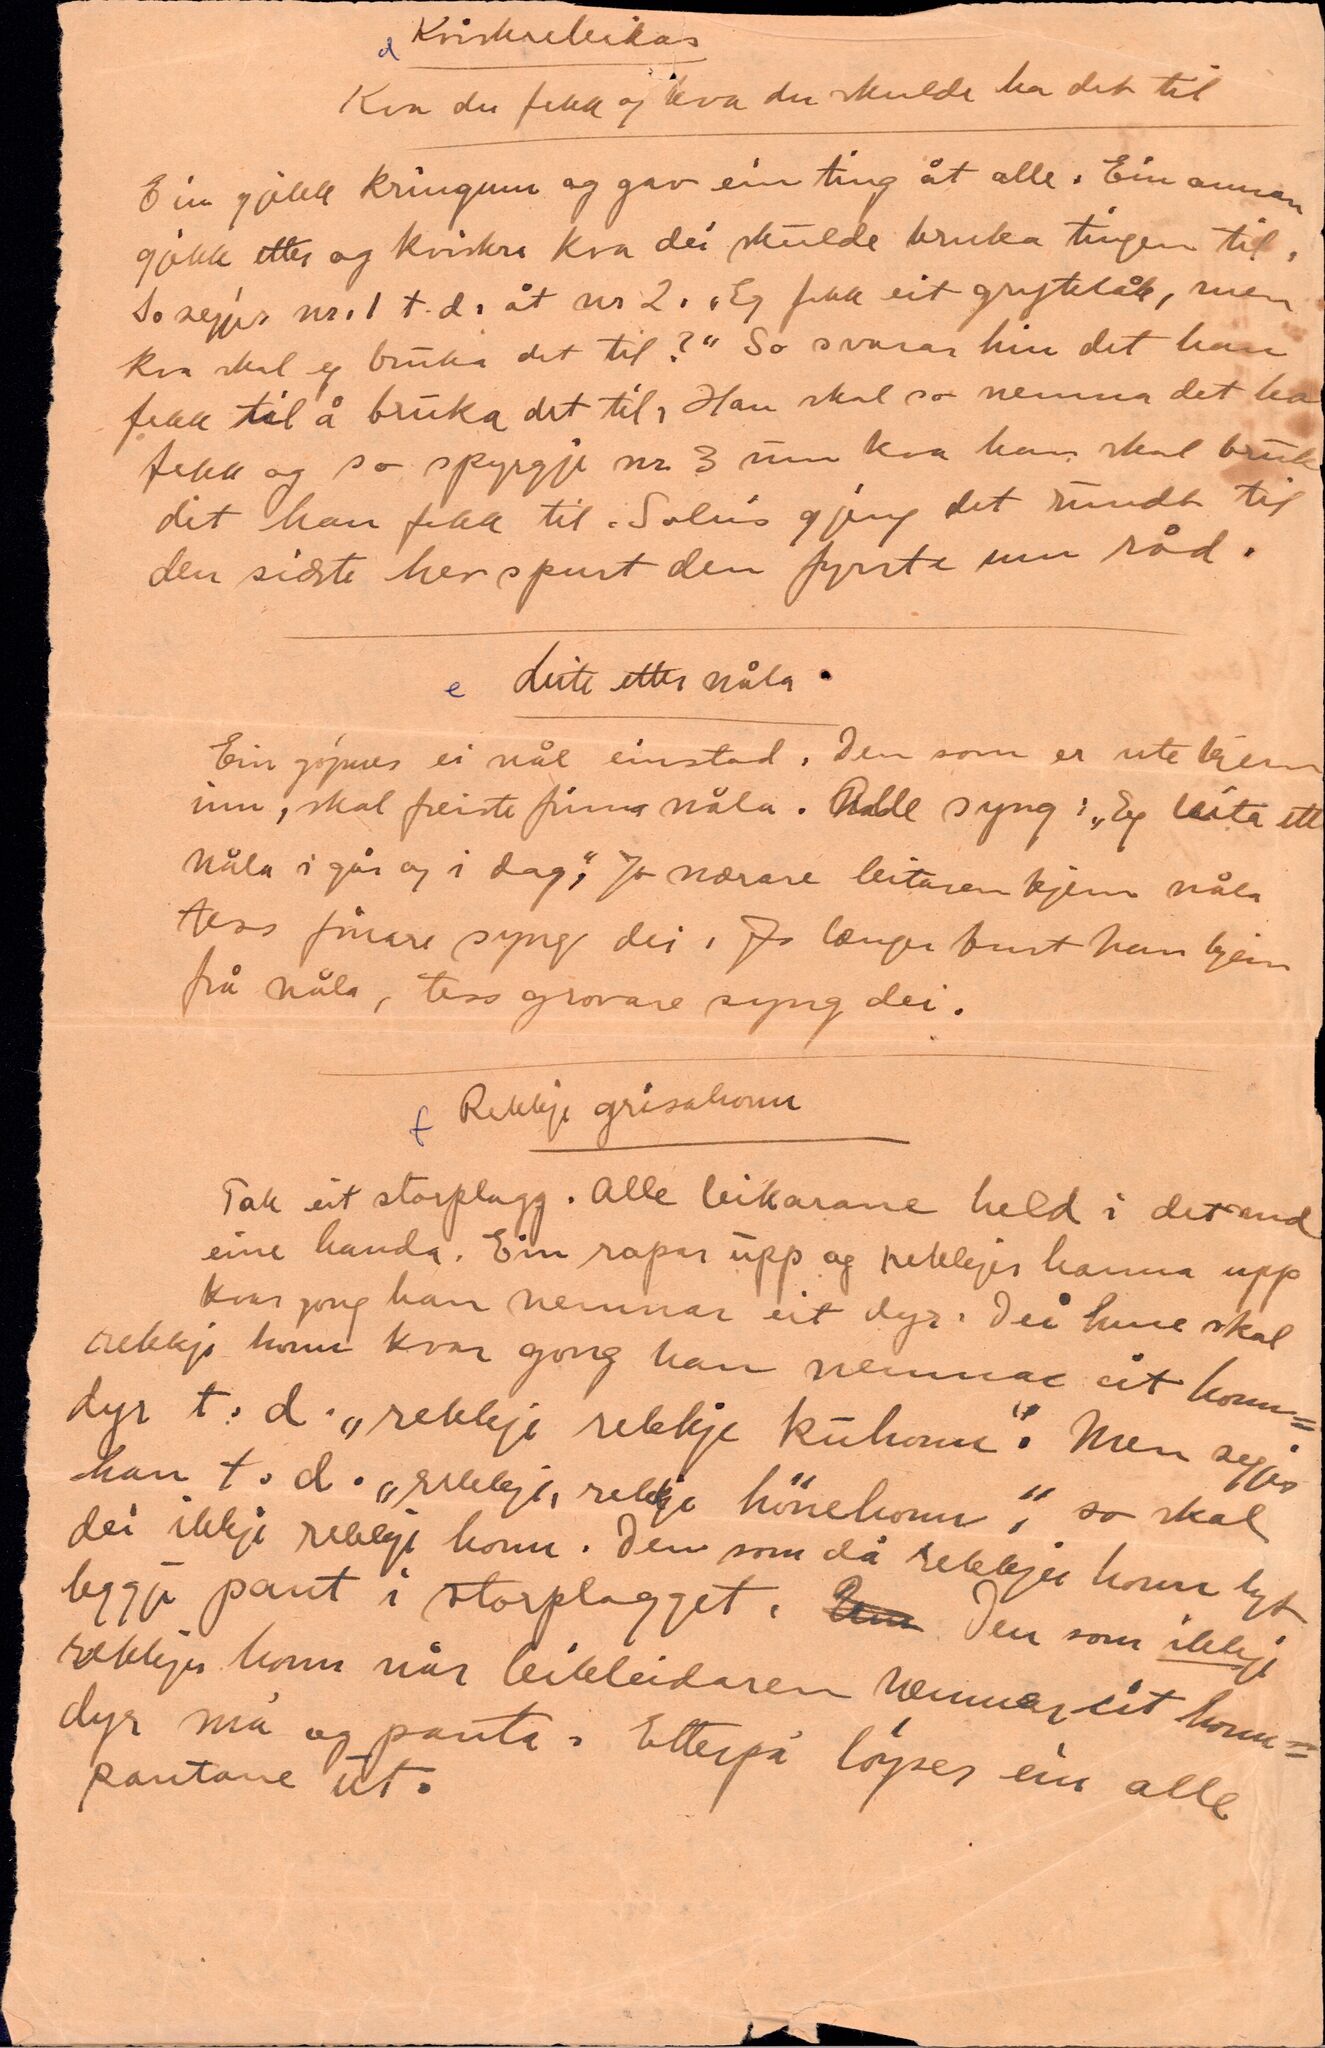 d Kviskreleikar
Kva du fekk og kva du skulde ha det til
Ein gjekk kringum og gav ein ting åt alle. Ein annan
gjekk etter og kviskra kva dei skulde bruka tingen til.
So segjer nr. 1 t. d. åt nr 2. „Eg fekk eit grytelåk, men
kva skal eg bruka det til?" So svarar hin det han
fekk til å bruka det til. Han skal so nemna det ha
fekk og so spyrgje nr. 3 um kva han skal bruk
det han fekk til. Soleis gjeng det rundt til
den siste hev spurt den fyrste um råd.
e Leite etter nåla.
Ein gøymer ei nål einstad. Den som er ute kjem
inn, skal freiste finna nåla. Alle syng: „Eg leita ett
nåla i går og i dag." Jo nærare leitaren kjem nåla
tess finare syng dei. Jo lenger burt han kjem
frå nåla, tess grovare syng dei.
f Rekkje grisahonn
Tak eit storplagg. Alle leikarane held i det med
eine handa. Ein ropar upp og rekkjer hanna upp
kvar gong han nemnar eit dyr. Dei hine skal
rekkje honn kvar gong han nemnar eit honn=
dyr t. d. „rekkje rekkje kuhonn". Men segjer
han t. d. „rekkje, rekkje hönehonn", so skal
dei ikkje rekkje honn. Den som då rekkjer honn lyt
leggje pant i storplagget. Den som ikkje
rekkjer honn når leikleidaren nemnar eit honn=
dyr må og panta. Etterpå løyser ein alle
pantane ut.